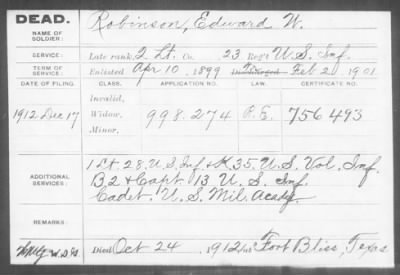 DEAD.
NAME OF SOLDIER: Robinson, Edward W.
SERVICE: Late rank, 2 Lt. Co. 23 Reg't U.S. Inf.
TERM OF SERVICE: Enlisted Apr 10, 1899 Discharged Feb 2, 1901
DATE OF FILING. CLASS. APPLICATION NO. LAW. CERTIFICATE NO.
Invalid,
1912 Dec 17 Widow, 998.274 756493
Minor,
1 Lt. 28. U.S. Inf & K 35. U.S. Vol. Inf.
ADDITIONAL SERVICES: B 2 & Capt 13 U.S. Inf.
Cadet. U.S. Mil. Acady.
REMARKS:
Died Oct 24, 1912, at Fort Bliss, Texas